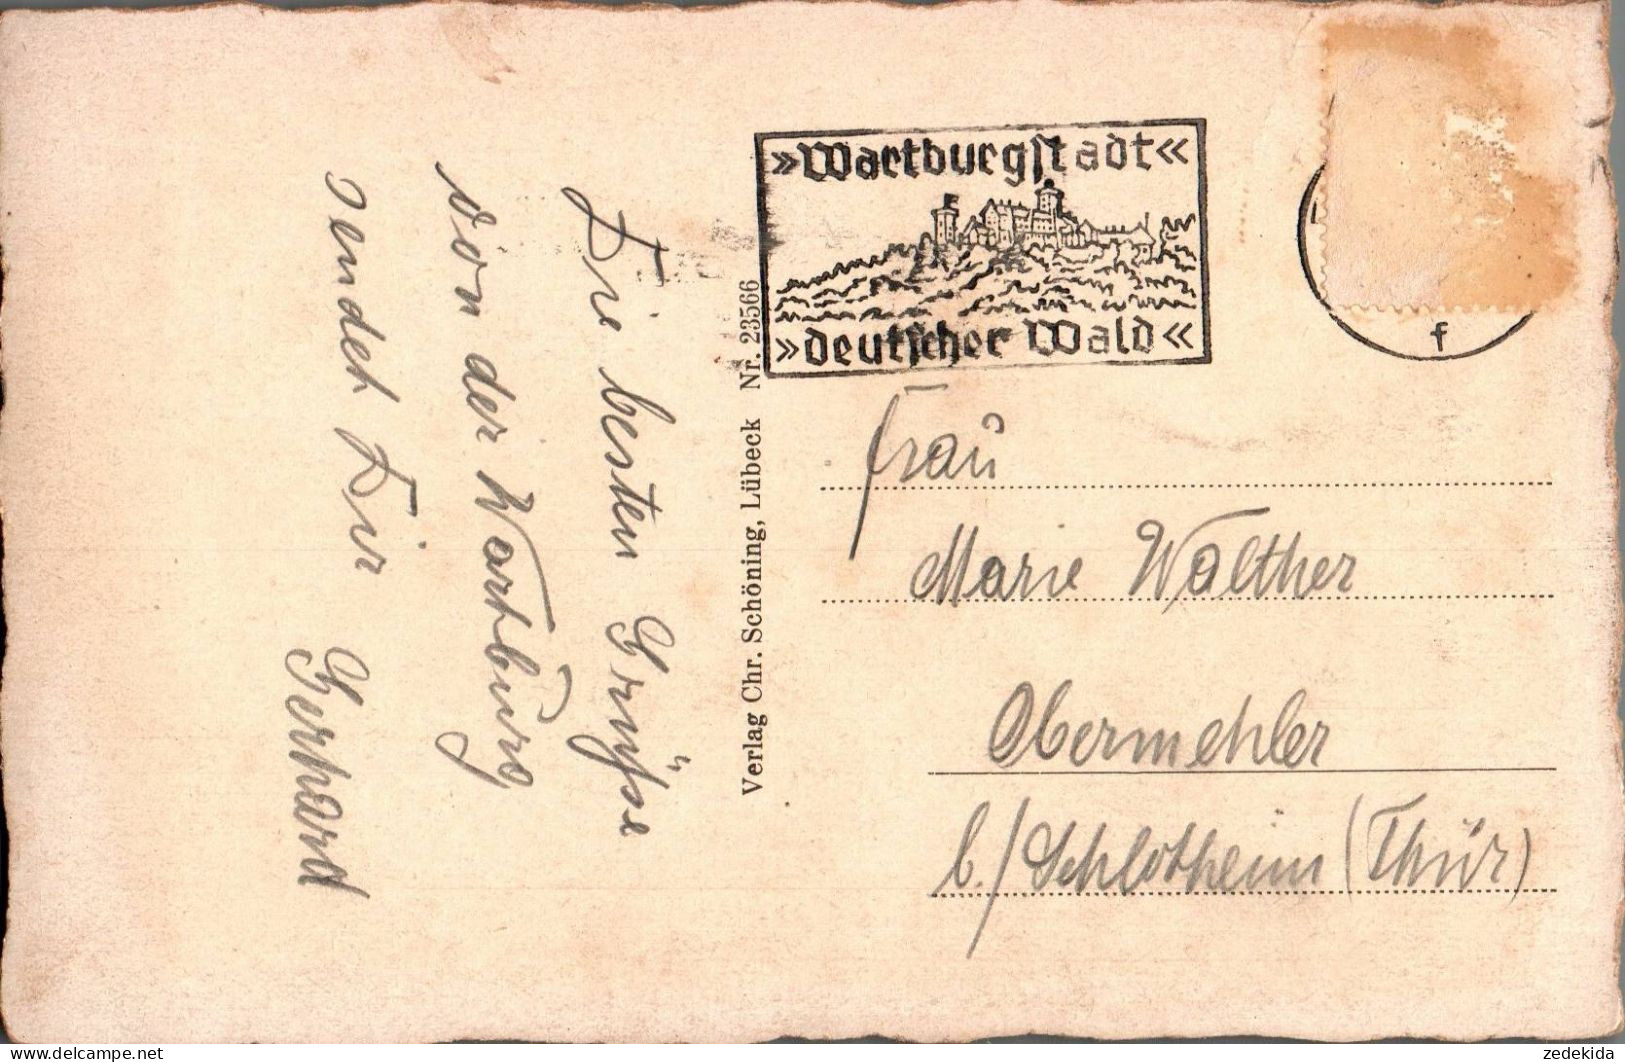 »Wartburgstadt«
»deutscher Wald«
f
Die besten Grüsse
von der Wartburg
sendet Dir
Gerhard
Verlag Chr. Schöning, Lübeck Nr. 23566
Frau
Marie Walther
Obermehler
b./Schlotheim (Thür)
zedekida